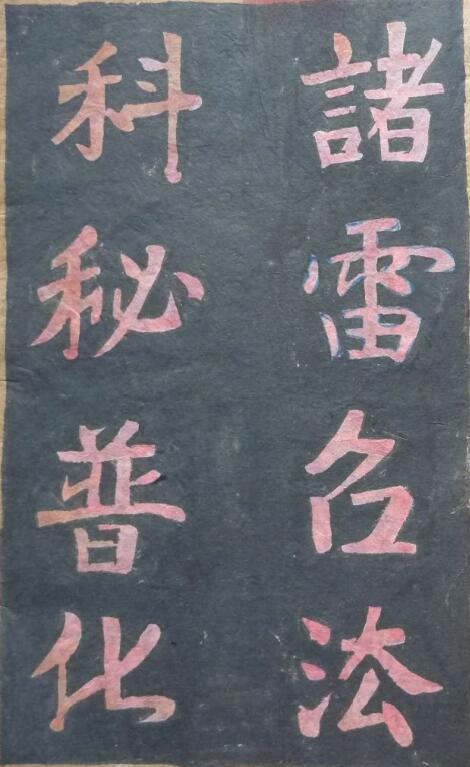 諸雷召法
科秘普化